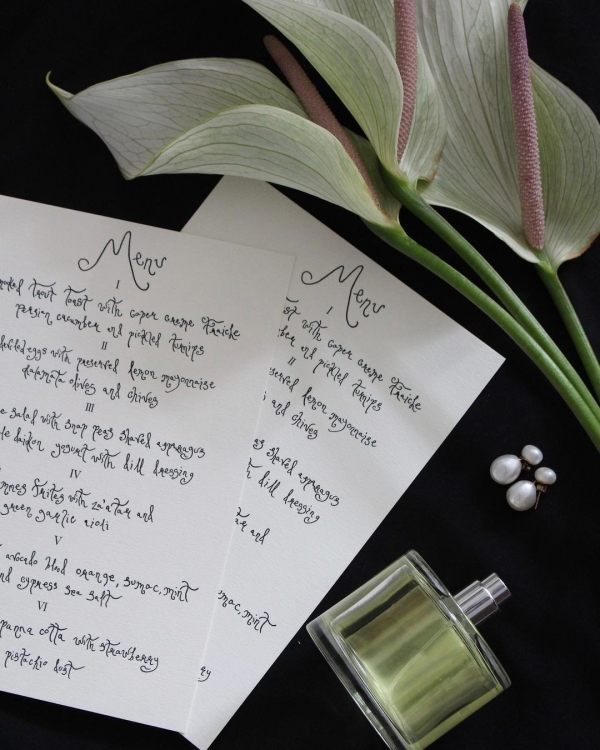 Menu
I
trout toast with caper creme fraiche
persian cucumber and pickled turnips
II
eggs with preserved lemon mayonnaise
kalamata olives and chives
III
salad with snap peas shaved asparagus
daikon yogurt with dill dressing
IV
frites with za'atar and
green garlic aioli
V
avocado blood orange, sumac, mint
and cypress sea salt
VI
panna cotta with strawberry
pistachio dust
Menu
I
with caper creme fraiche
and pickled turnips
II
lemon mayonnaise
and chives
shaved asparagus
dill dressing
and
mint